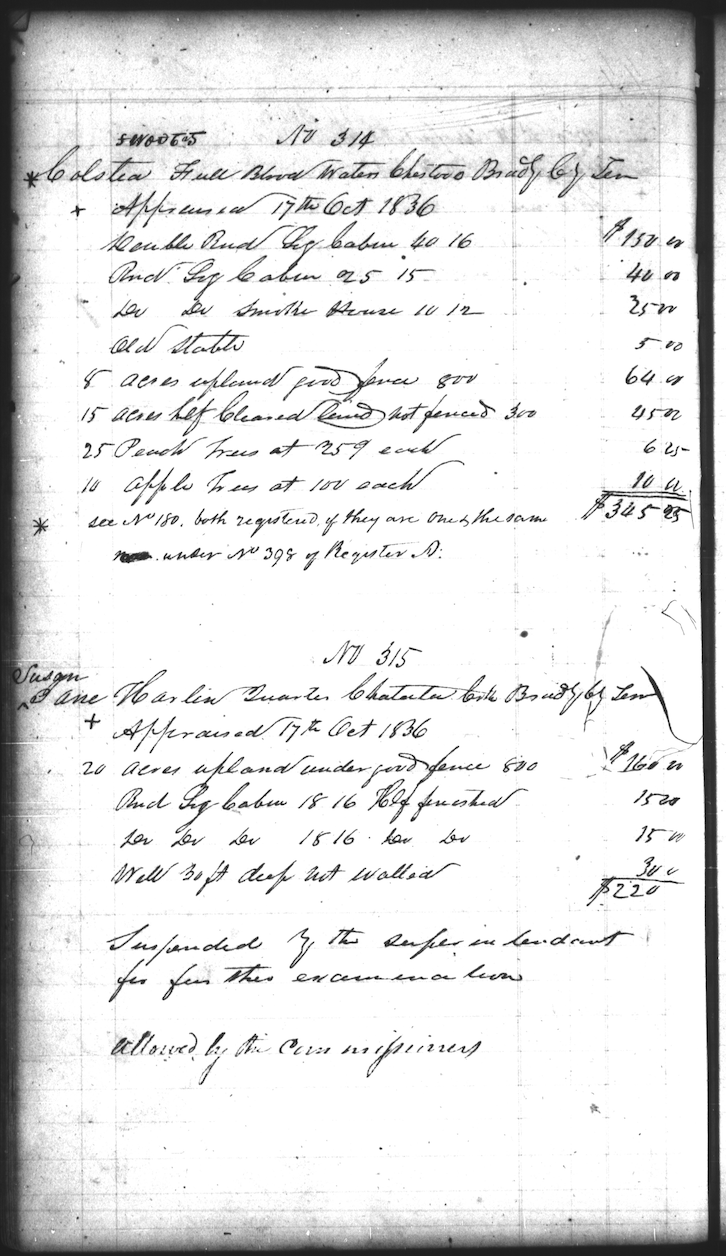 No 314
* Colstea Full Blood Waters Chestooo Brady Cy Ten
+ Appraised 17th Oct 1836
Double Rnd Log Cabin 40 16 $150 00
Rnd Log Cabin 25 15 40 00
Do Do Smoke House 10 12 25 00
Old Stable 5 00
8 acres upland good fence 800 64 00
15 acres hlf Cleared land not fenced 300 45 00
25 Peach Trees at 25 each 6 25
10 Apple Trees at 100 each 10 00
$345 25
* see No 180. both registered, if they are one & the same
under No 398 of Register A.
No 315
Susan
Jane Harlin Quarter Chatata Crk Brady Cy Ten
+ Appraised 17th Oct 1836
20 acres upland under good fence 800 $160 00
Rnd Log Cabin 18 16 Hlf finished 15 00
Do Do Do 18 16 Do Do 15 00
Well 30 ft deep not walled 30 0
$220
Suspended by the superintendant
for further examination
allowed by the commissioners